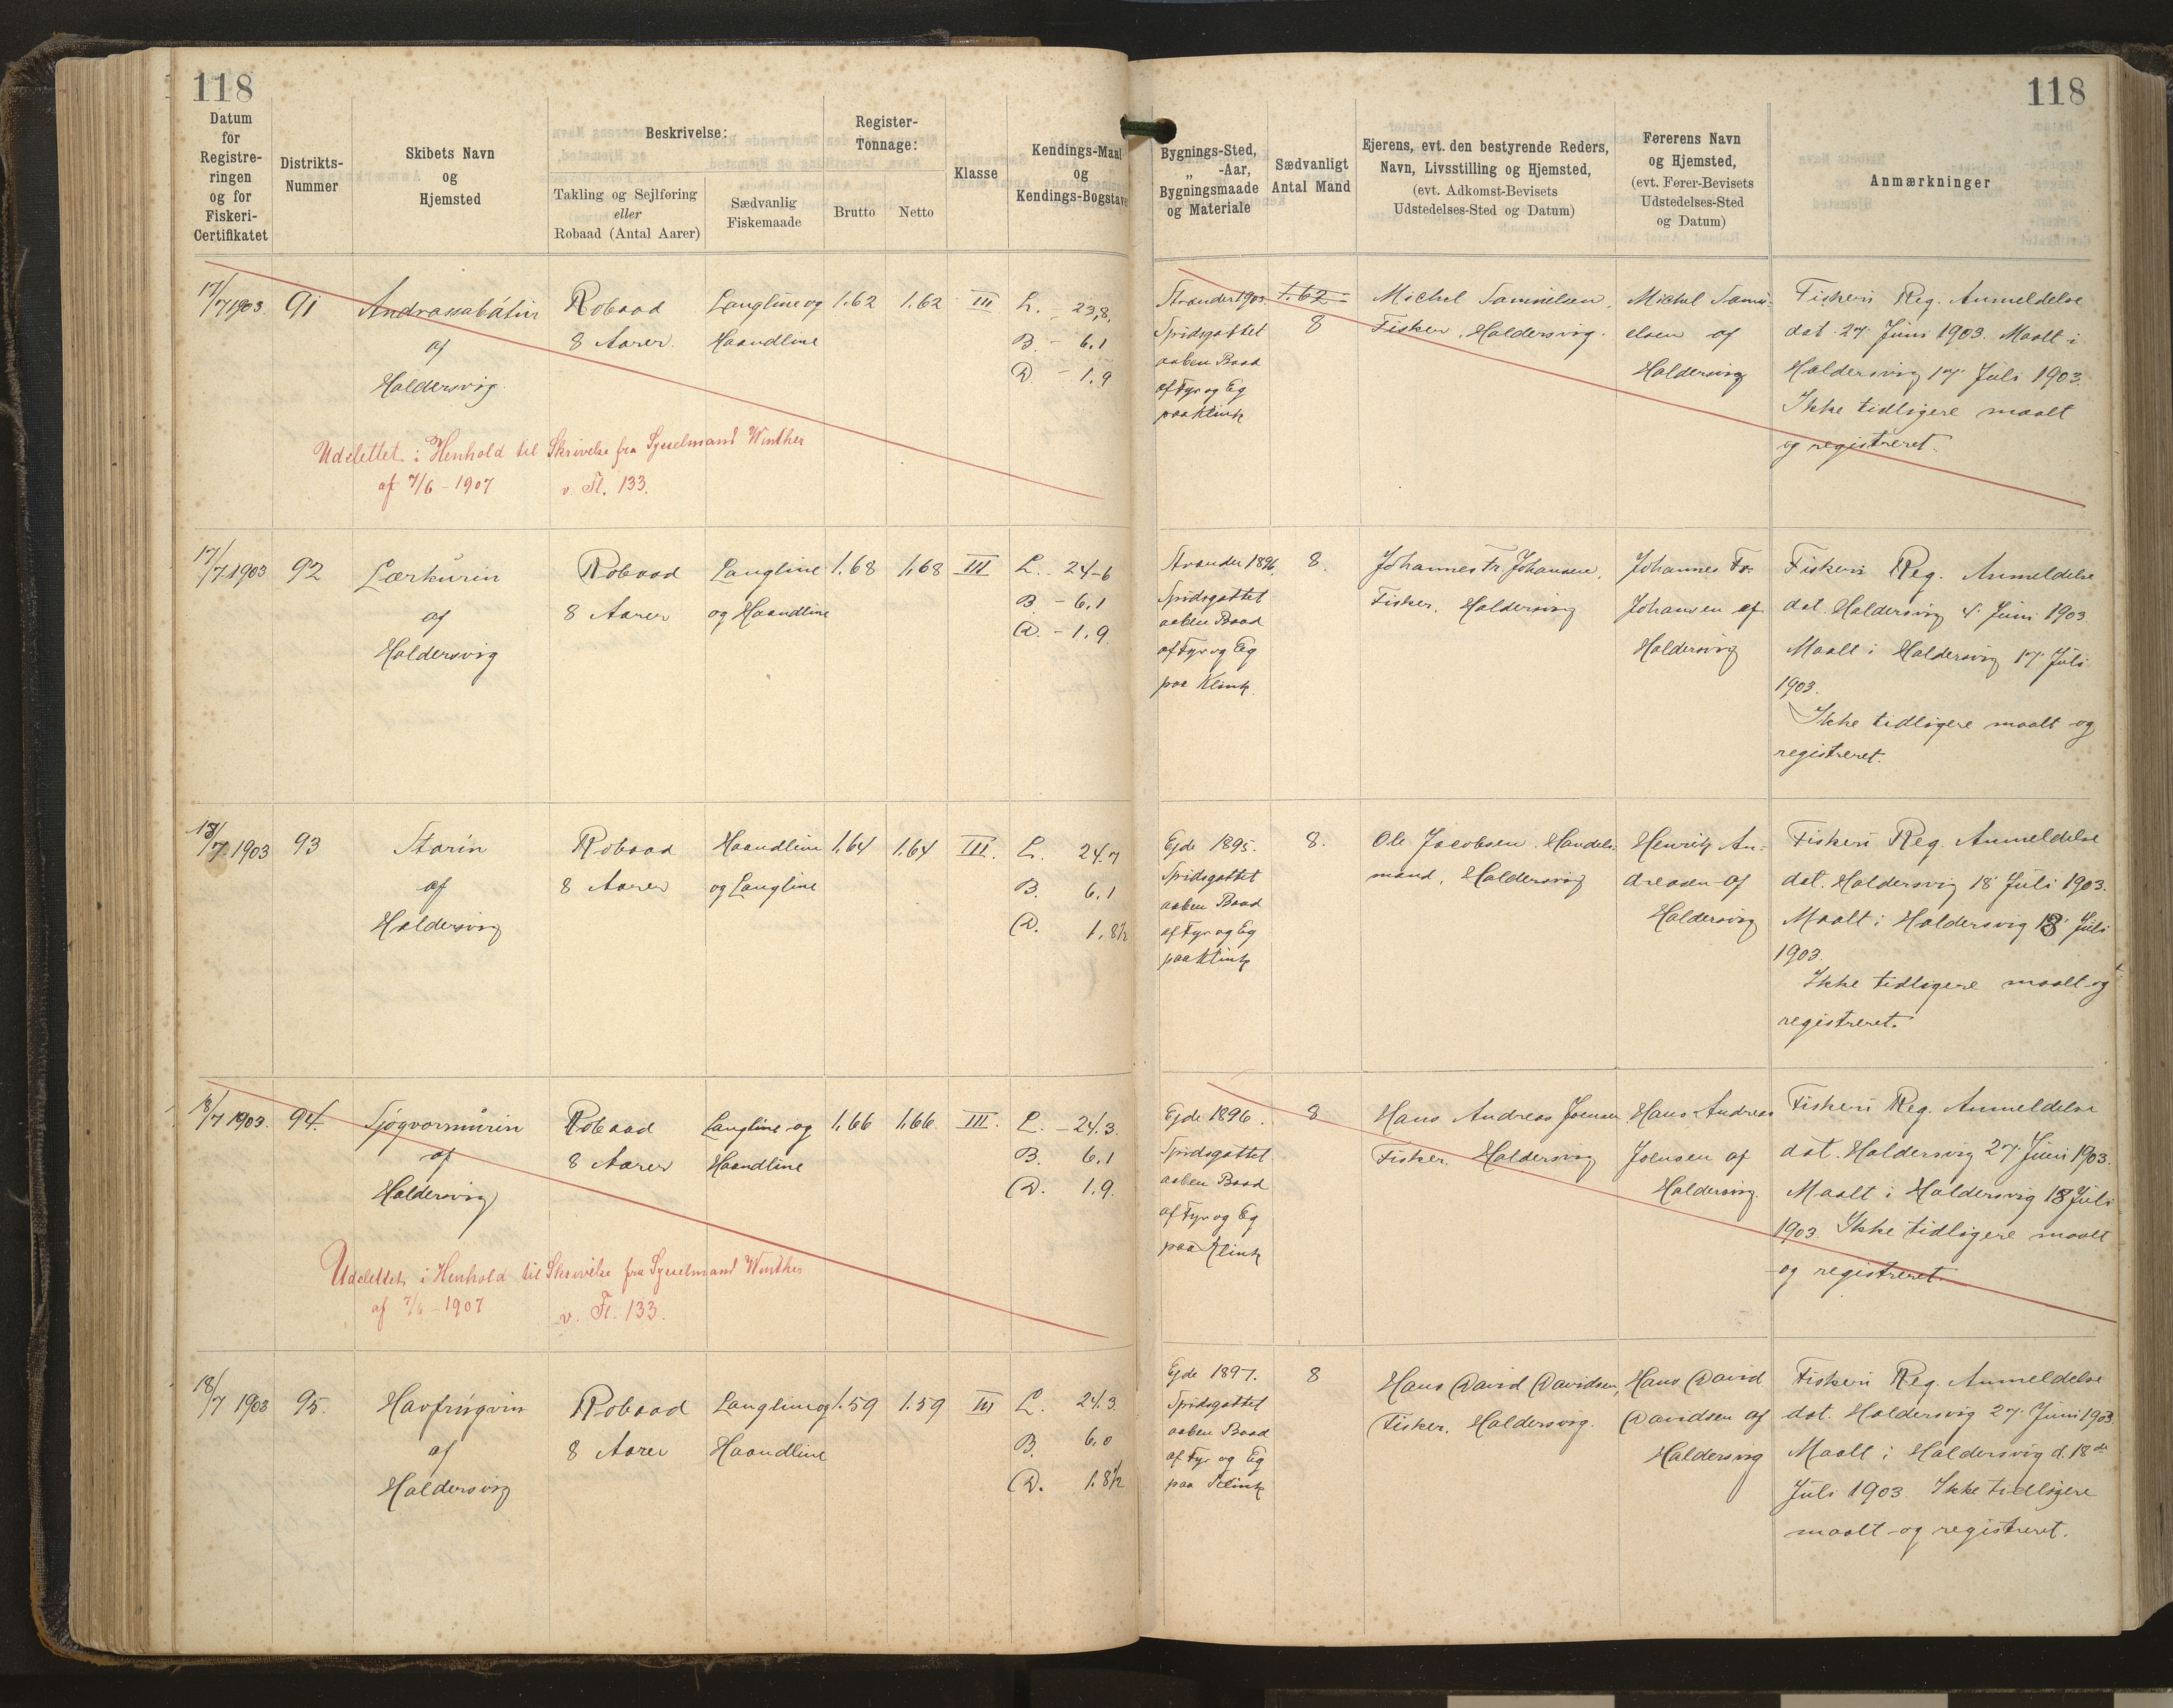 118
118
Datum
for
Registre-
ringen
og for
Fiskeri-
Certifikatet
Distrikts-
Nummer
Skibets Navn
og
Hjemsted
Beskrivelse:
Takling og Sejlføring
eller
Robaad (Antal Aarer)
Sædvanlig
Fiskemaade
Register-
Tonnage:
Brutto
Netto
Klasse
Kendings-Maal
og
Kendings-Bogstaver
Bygnings-Sted,
„ -Aar,
Bygningsmaade
og Materiale
Sædvanligt
Antal Mand
Ejerens, evt. den bestyrende Reders,
Navn, Livsstilling og Hjemsted,
(evt. Adkomst-Bevisets
Udstedelses-Sted og Datum)
Førerens Navn
og Hjemsted,
(evt. Fører-Bevisets
Udstedelses-Sted
og Datum)
Anmærkninger
17/7 1903.
91
Andrassabátur
af
Haldersvig.
Robaad
8 Aarer.
Langline og
Haandline
1.62
1.62
III
L. - 23,8,
B. - 6.1
D. - 1.9
Strander 1903
Spidsgattet
aaben Baad
af Fyr og Eg
paa Klink
1.62
8
Michel Samuelsen,
Fisker, Haldersvig.
Michel Samu-
elsen af
Haldersvig
Fiskeri Reg. Anmeldelse
dat. 27. Juni 1903. Maalt i
Haldersvig 17. Juli 1903.
Ikke tidligere maalt
og registreret.
Udslettet i Henhold til Skrivelse fra Sysselmand Winther
af 7/6 - 1907 v. Fl. 133.
17/7 1903
92
Lærkurin
af
Haldersvig
Robaad
8 Aarer
Langline
og Haandline
1.68
1.68
III
L. 24-6
B. - 6.1
D. - 1.9.
Strander 1896.
Spidsgattet
aaben Baad
af Fyr og Eg
paa Klink.
8.
Johannes Fr. Johansen,
Fisker. Haldersvig
Johannes Fr.
Johansen af
Haldersvig
Fiskeri Reg. Anmeldelse
dat. Haldersvig 4. Juni 1903.
Maalt i Haldersvig 17. Juli
1903.
Ikke tidligere maalt og
registreret.
18/7 1903
93
Starin
af
Haldersvig
Robaad
8 Aarer
Haandline
og Langline
1.64
1.64
III.
L. 24.7
B. 6.1
D. 1.8½
Ejde 1895.
Spidsgattet
aaben Baad
af Fyr og Eg
paa Klink
8.
Ole Jacobsen. Handels-
mand, Haldersvig
Henrik An-
dreasen af
Haldersvig
Fiskeri Reg. Anmeldelse
dat. Haldersvig 18 Juli 1903.
Maalt i Haldersvig 18. Juli
1903.
Ikke tidligere maalt og
registreret.
18/7 1903.
94.
Sjógvarmúrin
af
Haldersvig
Robaad
8 Aarer
Langline og
Haandline
1.66
1.66
III.
L. - 24.3.
B. 6.1
D. 1.9.
Ejde 1896.
Spidsgattet
aaben Baad
af Fyr og Eg
paa Klink
8
Hans Andreas Joensen
Fisker. Haldersvig
Hans Andreas
Joensen af
Haldersvig.
Fiskeri Reg. Anmeldelse
dat. Haldersvig 27. Juni 1903.
Maalt i Haldersvig 18 Juli
1903. Ikke tidligere maalt
og registreret.
Udslettet i Henhold til Skrivelse fra Sysselmand Winther
af 7/6 - 1907 v. Fl. 133.
18/7 1903
95.
Havfrúgvin
af
Haldersvig
Robaad
8 Aarer
Langline og
Haandline
1.59
1.59
III
L. 24.3.
B. 6.0
D. 1.8½
Ejde 1897.
Spidsgattet
aaben Baad
af Fyr og Eg
paa Klink
8
Hans David Davidsen,
Fisker. Haldersvig.
Hans David
Davidsen af
Haldersvig
Fiskeri Reg. Anmeldelse
dat. Haldersvig 27. Juni 1903
Maalt i Haldersvig d. 18de
Juli 1903. Ikke tidligere
maalt og registreret.